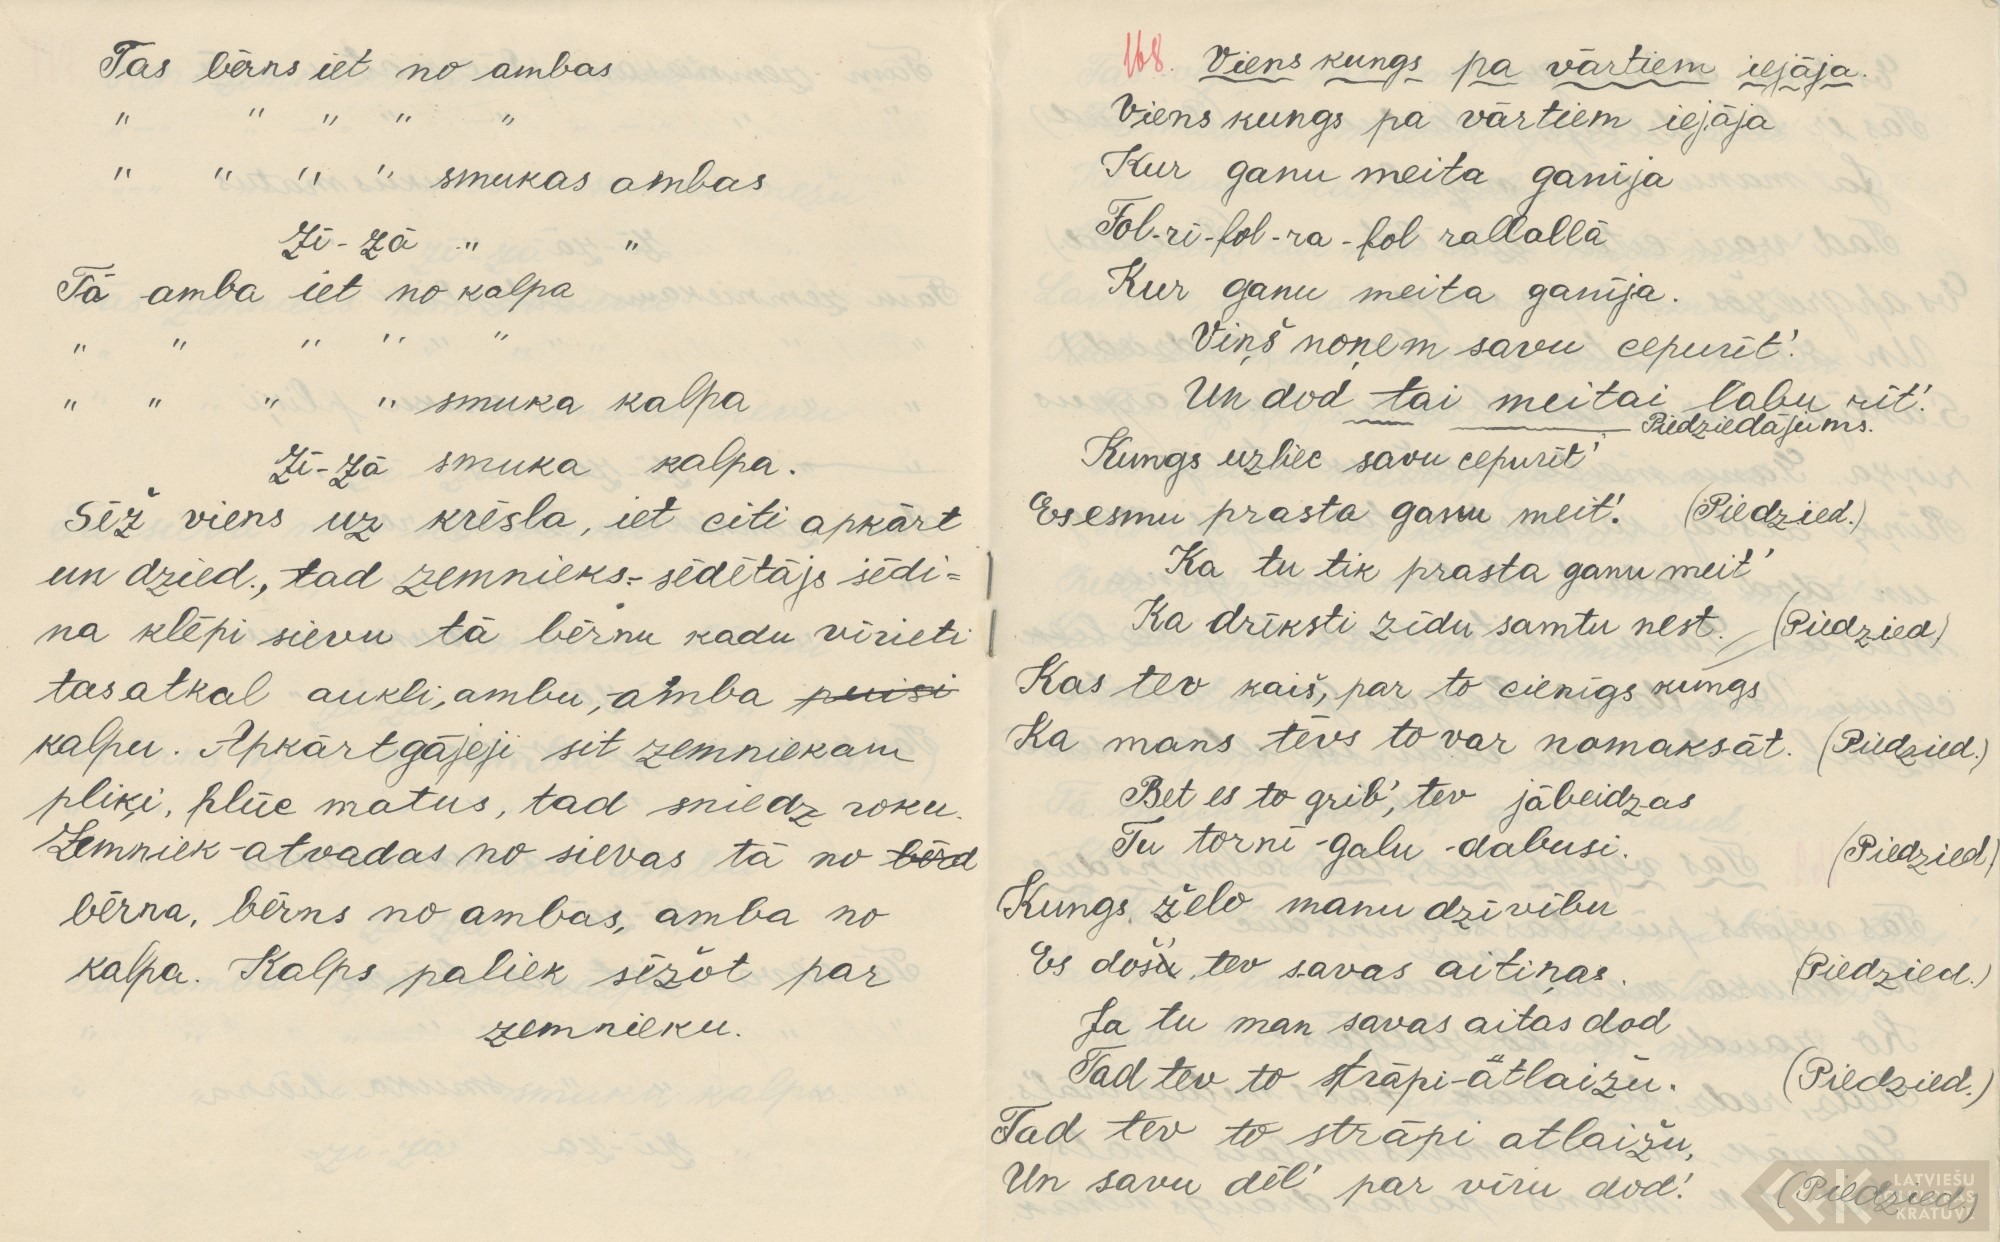 Tas bērns iet no ambas
" " " " "
" " " " smukas ambas
Zi-zā " "
Tā amba iet no kalpa
" " " " "
" " " " smuka kalpa
Zi-zā smuka kalpa.
Sēž viens uz krēsla, iet citi apkārt
un dzied., tad zemnieks.- sēdētājs sēdi=
na klēpi sievu tā bērnu kadu vīrieti
tas atkal aukli, ambu, amba puisi
kalpu. Apkārtgājeji sit zemniekam
pliķi, plūc matus, tad sniedz roku.
Zemniek-atvadas no sievas tā no bērd
bērna, bērns no ambas, amba no
kalpa. Kalps paliek sēžot par
zemnieku.
168. Viens kungs pa vārtiem iejāja.
Viens kungs pa vārtiem iejāja
Kur ganu meita ganīja
Fol-ri-fol-ra-fol rallallā
Kur ganu meita ganīja.
Viņš noņem savu cepurīt'.
Un dod tai meitai labu rīt'.
Piedziedājums.
Kungs uzliec savu cepurīt'
Es esmu prasta ganu meit'. (Piedzied.)
Ka tu tik prasta ganu meit'
Ka drīksti zīdu samtu nest. (Piedzied)
Kas tev kaiš, par to cienīgs kungs
Ka mans tēvs to var nomaksāt. (Piedzied.)
Bet es to grib', tev jābeidzas
Tu torņi-galu-dabusi. (Piedzied)
Kungs, želo manu dzīvību
Es došu tev savas aitiņas. (Piedzied.)
Ja tu man savas aitas dod
Tad tev to strāpi-atlaižu. (Piedzied.)
Tad tev to strāpi atlaižu,
Un savu dēl' par vīru dod'. (Piedzied)
LATVIEŠU
FOLKLORAS
KRĀTUVE